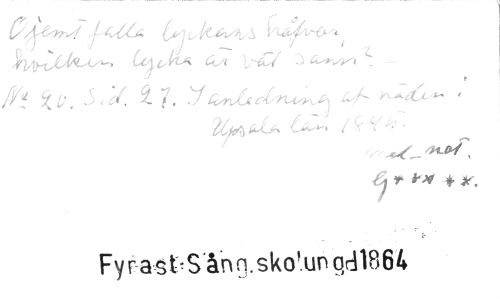 Ojemt falla lyckans håfvor,
hvilken lycka är väl sann? –
No 20. Sid. 27. I anledning af nöden i
Upsala län 1845.
med not.
G*****.
Fyrast:Sång.skol.ungd1864